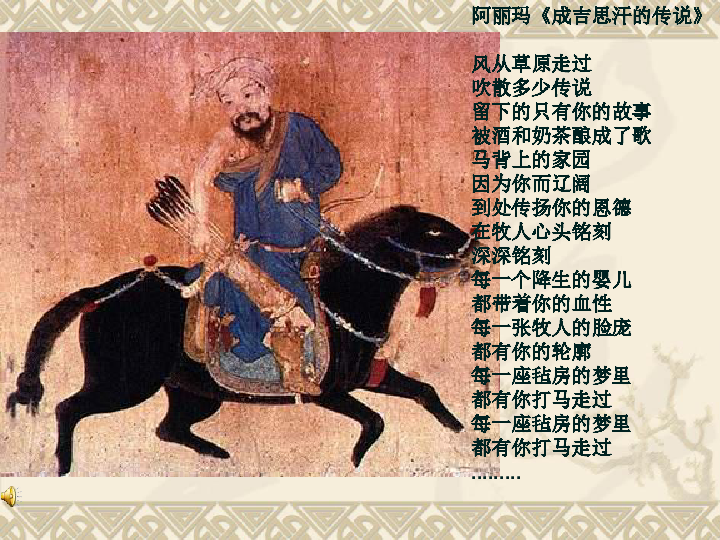 阿丽玛《成吉思汗的传说》
风从草原走过
吹散多少传说
留下的只有你的故事
被酒和奶茶酿成了歌
马背上的家园
因为你而辽阔
到处传扬你的恩德
在牧人心头铭刻
深深铭刻
每一个降生的婴儿
都带着你的血性
每一张牧人的脸庞
都有你的轮廓
每一座毡房的梦里
都有你打马走过
每一座毡房的梦里
都有你打马走过
………